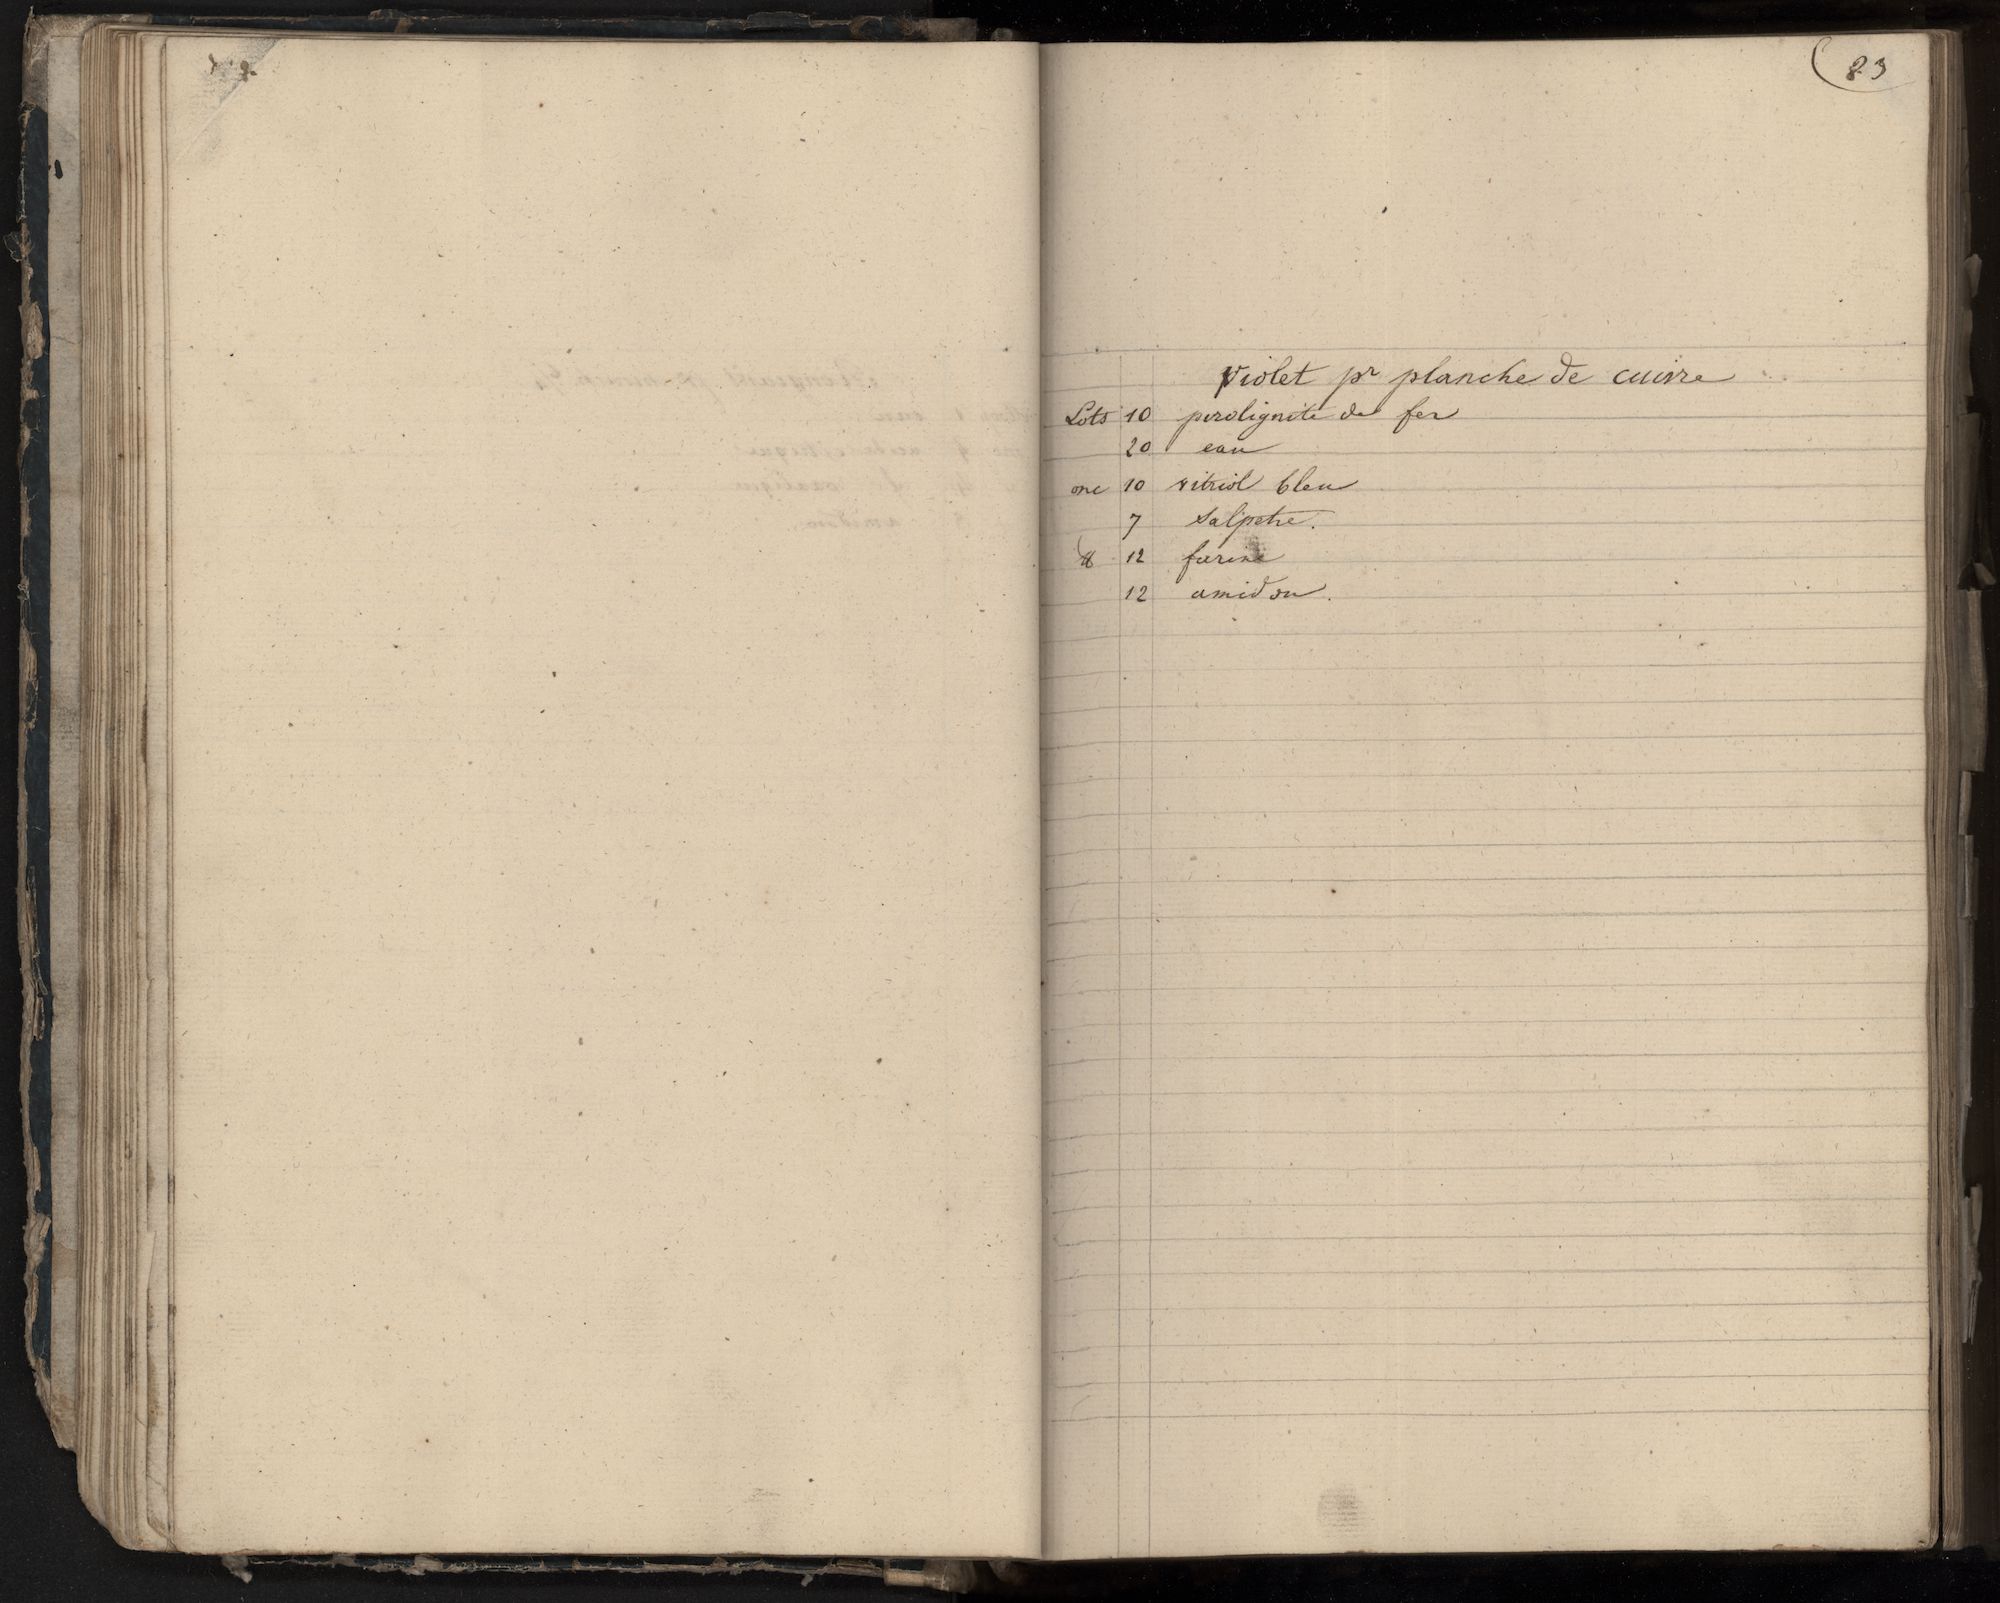 83
Violet pr planche de cuivre
Lots 10 pirolignite de fer
20 eau
onc 10 vitriol bleu
7 Salpetre.
℔ 12 farine
12 amidon.